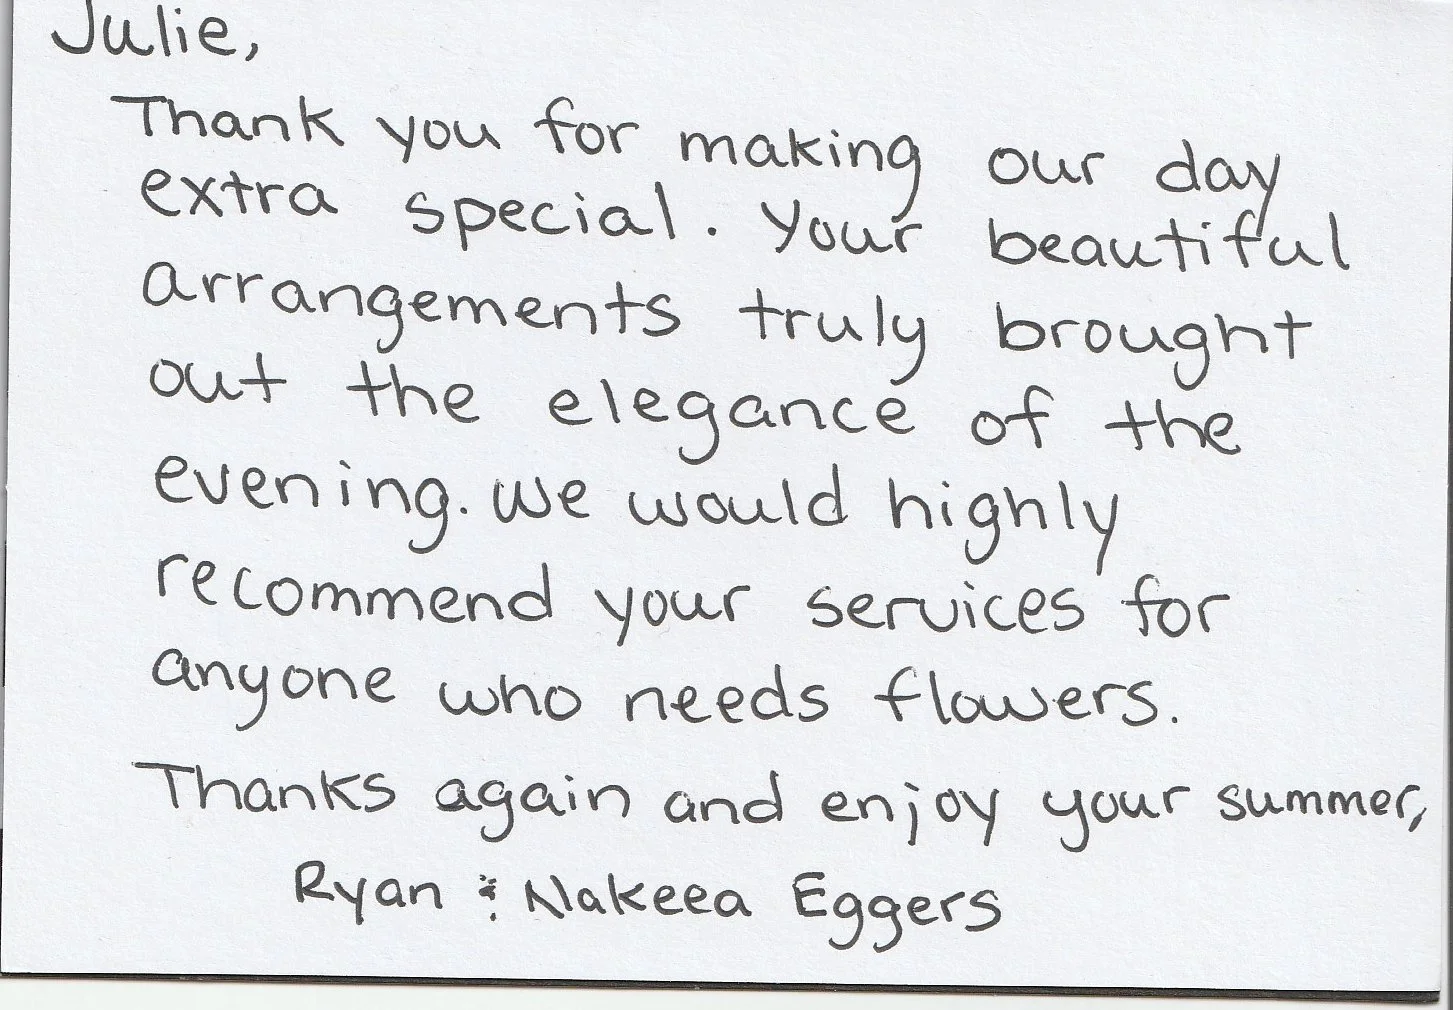 Julie,
Thank you for making our day
extra special. Your beautiful
arrangements truly brought
out the elegance of the
evening. We would highly
recommend your services for
anyone who needs flowers.
Thanks again and enjoy your summer,
Ryan & Nakeea Eggers